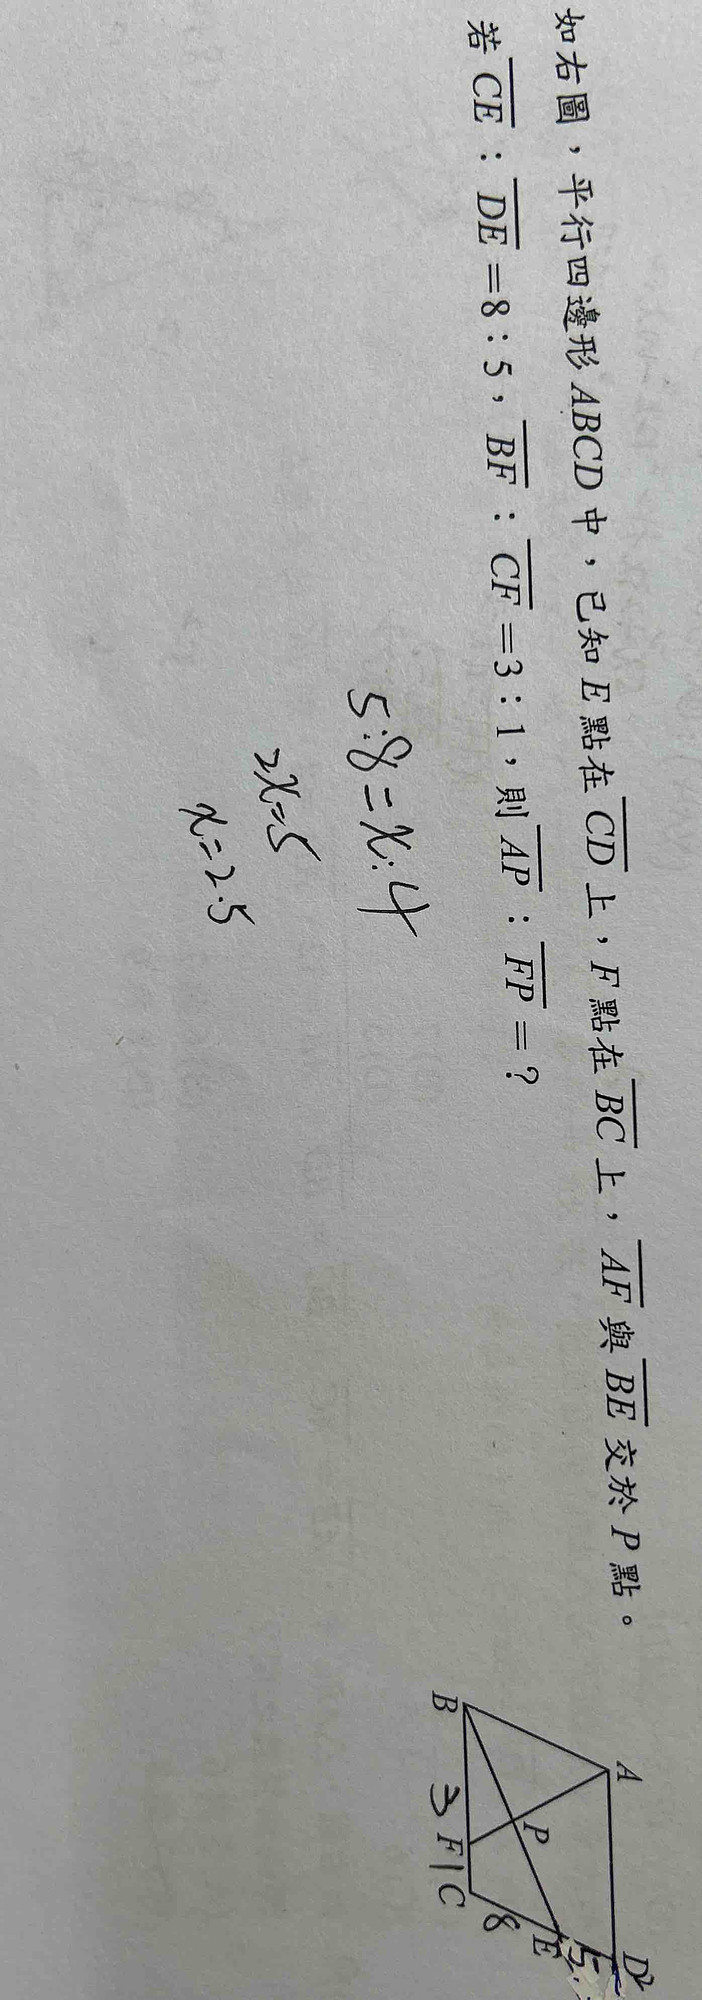 如右圖，平行四邊形ABCD中，已知E點在CD上，F點在BC上，AF與BE交於P點。
若CE：DE=8：5，BF：CF=3：1，則AP：FP=？
5:8=x:4
2x=5
x=2.5
A
D
P
E
B
F
C
3
1
8
5